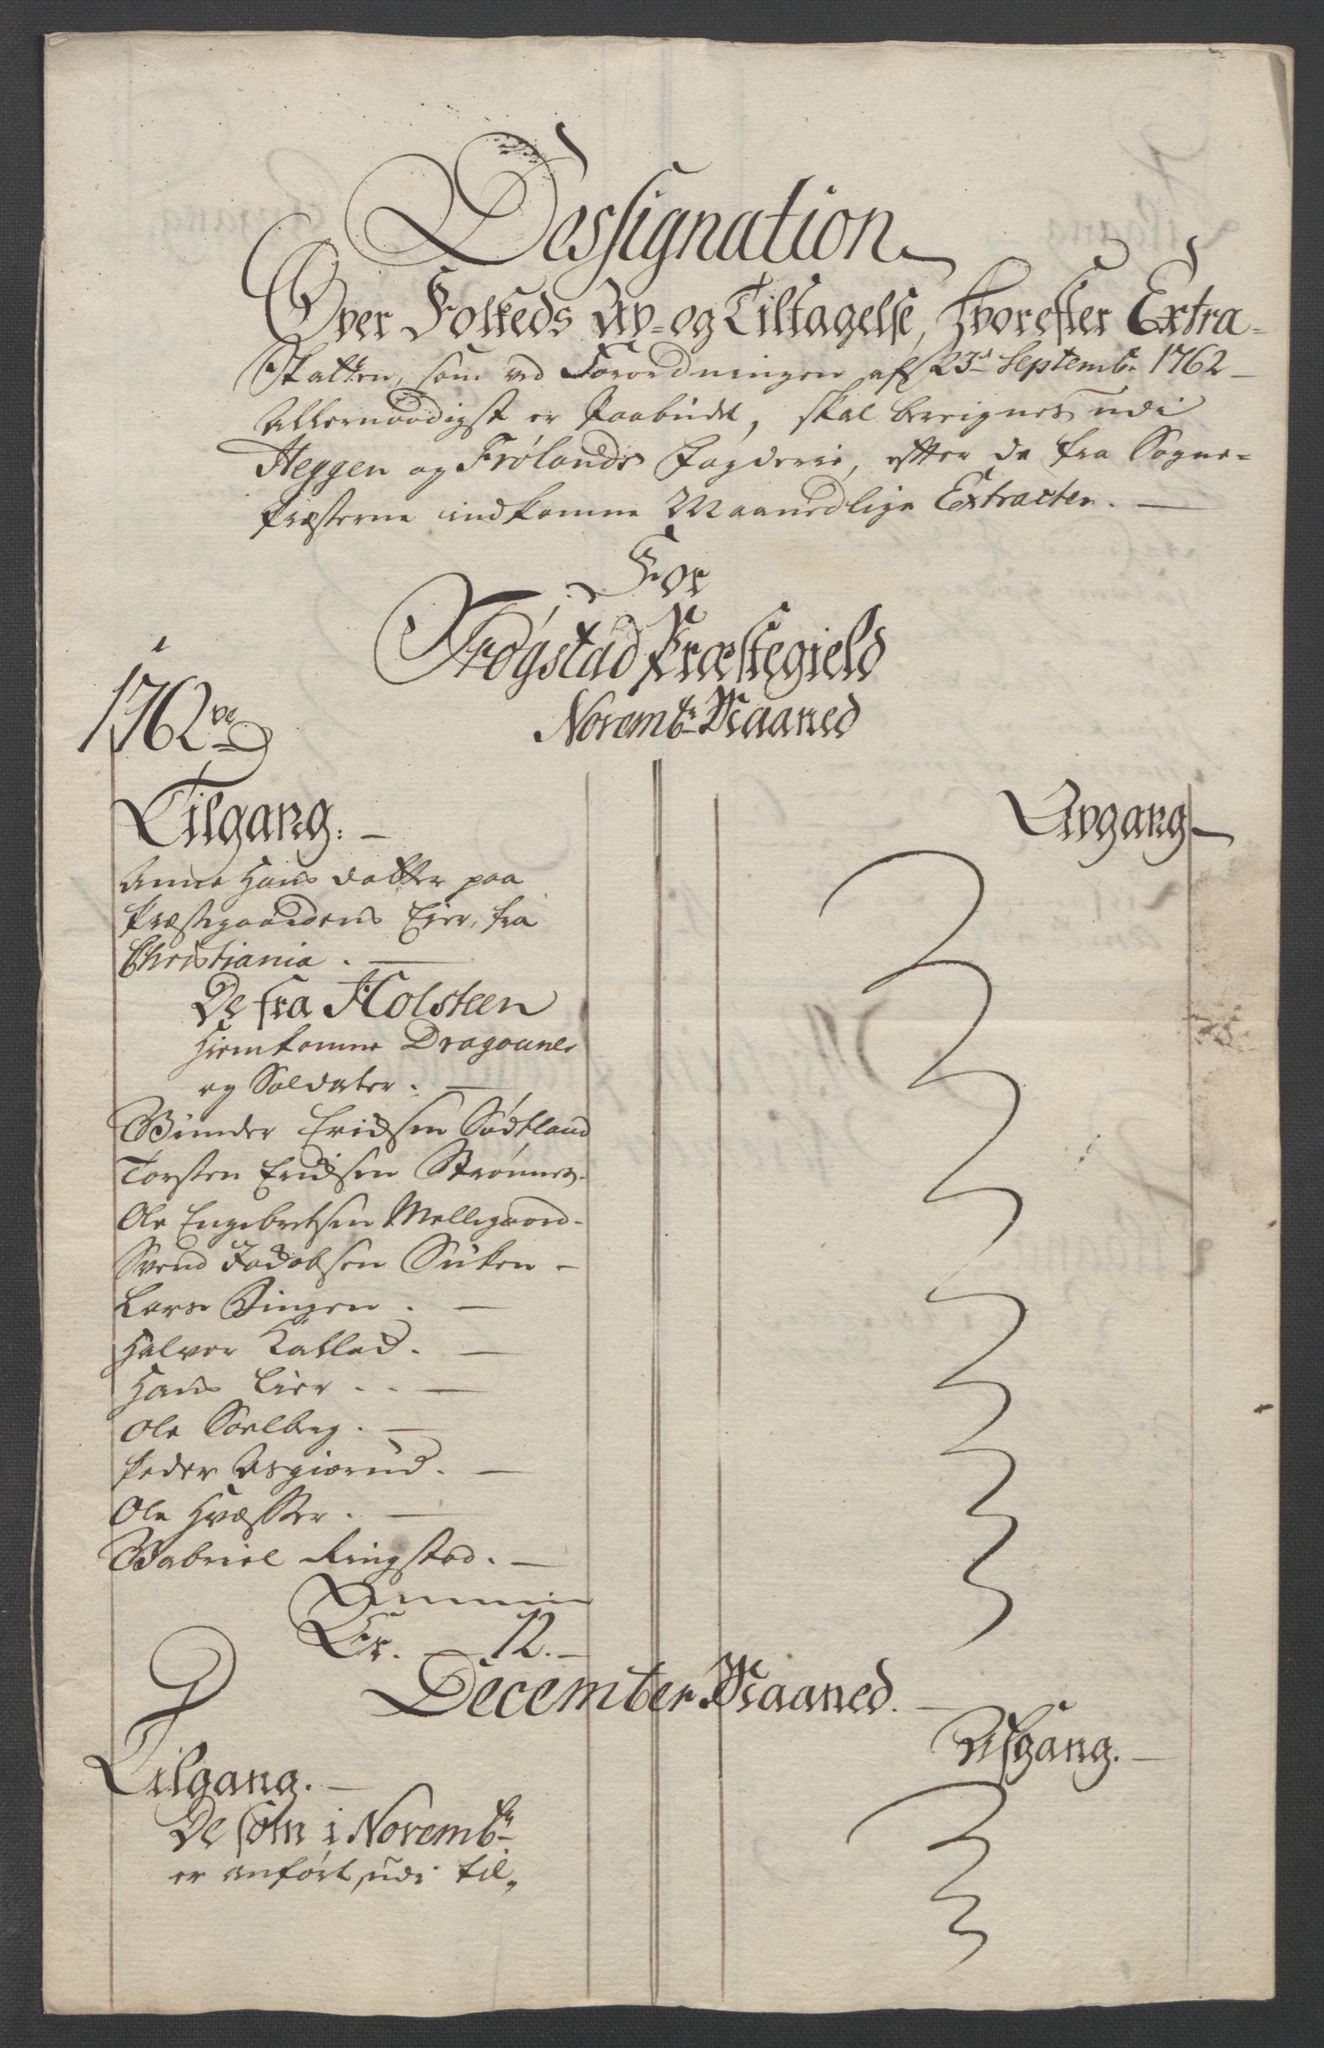 Dessignation
Over Folkeds Av- og Tiltagelse, hvorefter Extra-
Skatten, som ved Forordningen af 23d Septembr 1762
Allernaadigst er Paabudt, skal bereignes udi
Heggen og Frølands Fogderie, efter de fra Sogne-
Præsterne indkomne Maanedlige Extracter.
For
Trøgstad Præstegield
1762ve
Novembr Maaned
Tilgang. Avgang
Anne Hans datter paa
Præstegaardens Eier, fra
Christiania.
De fra Holsteen
Hiemkomne Dragouner
og Soldater.
Gunder Erichsen
Torsten Erichsen Strønnes
Ole Engebretsen Mellegaard
Svend Jacobsen
Lars Bingen.
Halvor Kallad.
Hans Lier.
Ole Soelberg.
Peder Asgierud.
Ole
Gabriel Ringstad.
Summa
Er. 12.
December Maaned.
Tilgang. Afgang.
De som i Novembr
er anført, udi til-